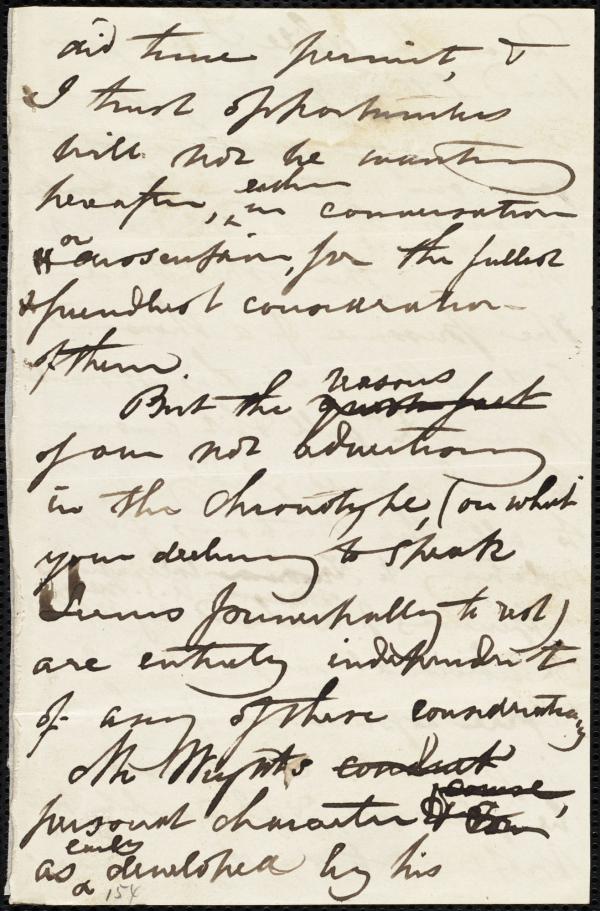 did time permit, &
I trust opportunities
will not be wanting
hereafter, either in conversation
or discussion, for the fullest
& friendliest consideration
of them.
But the reasons
of our not advertising
in the Chronotype, (on what
your declining to speak
seems principally to rest)
are entirely independent
of any of these considerations
Mr Wright's conduct
personal character & course,
as early developed by his
154